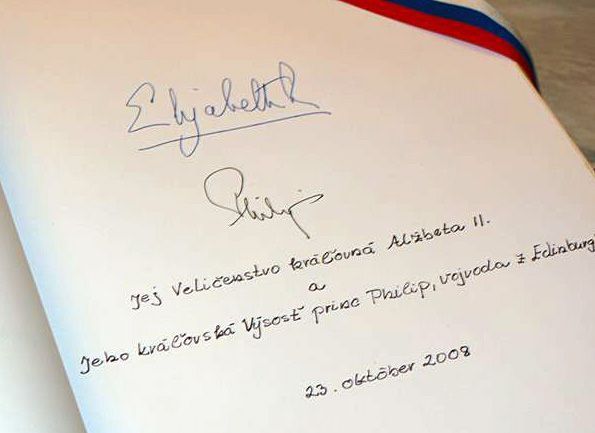 Elizabeth R
Philip
Jej Veličenstvo kráľovná Alžbeta II.
a
Jeho kráľovská Výsosť princ Philip, vojvoda z Edinburg
23. október 2008